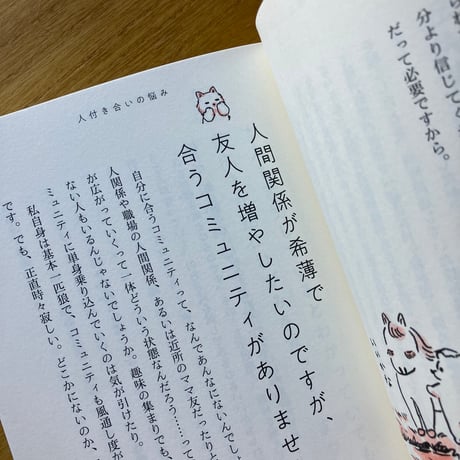 らね
分より信じてく
だって必要ですから。
人付き合いの悩み
人間関係が希薄で
友人を増やしたいのですが、
合うコミュニティがありませ
自分に合うコミュニティって、なんであんなにないんでしょ
人間関係や職場の人間関係、あるいは近所のママ友だったりと
が広がっていくって一体どういう状態なんだろう……って
ない人もいるんじゃないでしょうか。趣味の集まりでも、
ミュニティに単身乗り込んでいくのは気が引けたり。
私自身は基本一匹狼で、コミュニティも風通し度が
です。でも、正直時々寂しい。どこかにないのか、